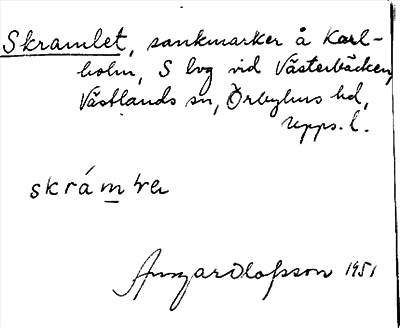 Skramlet, sankmarker å Karl-
holm, S lvg vid Västerbäcken,
Västlands sn, Örbyhus hd,
Upps. l.
skrám
Olofsson 1951